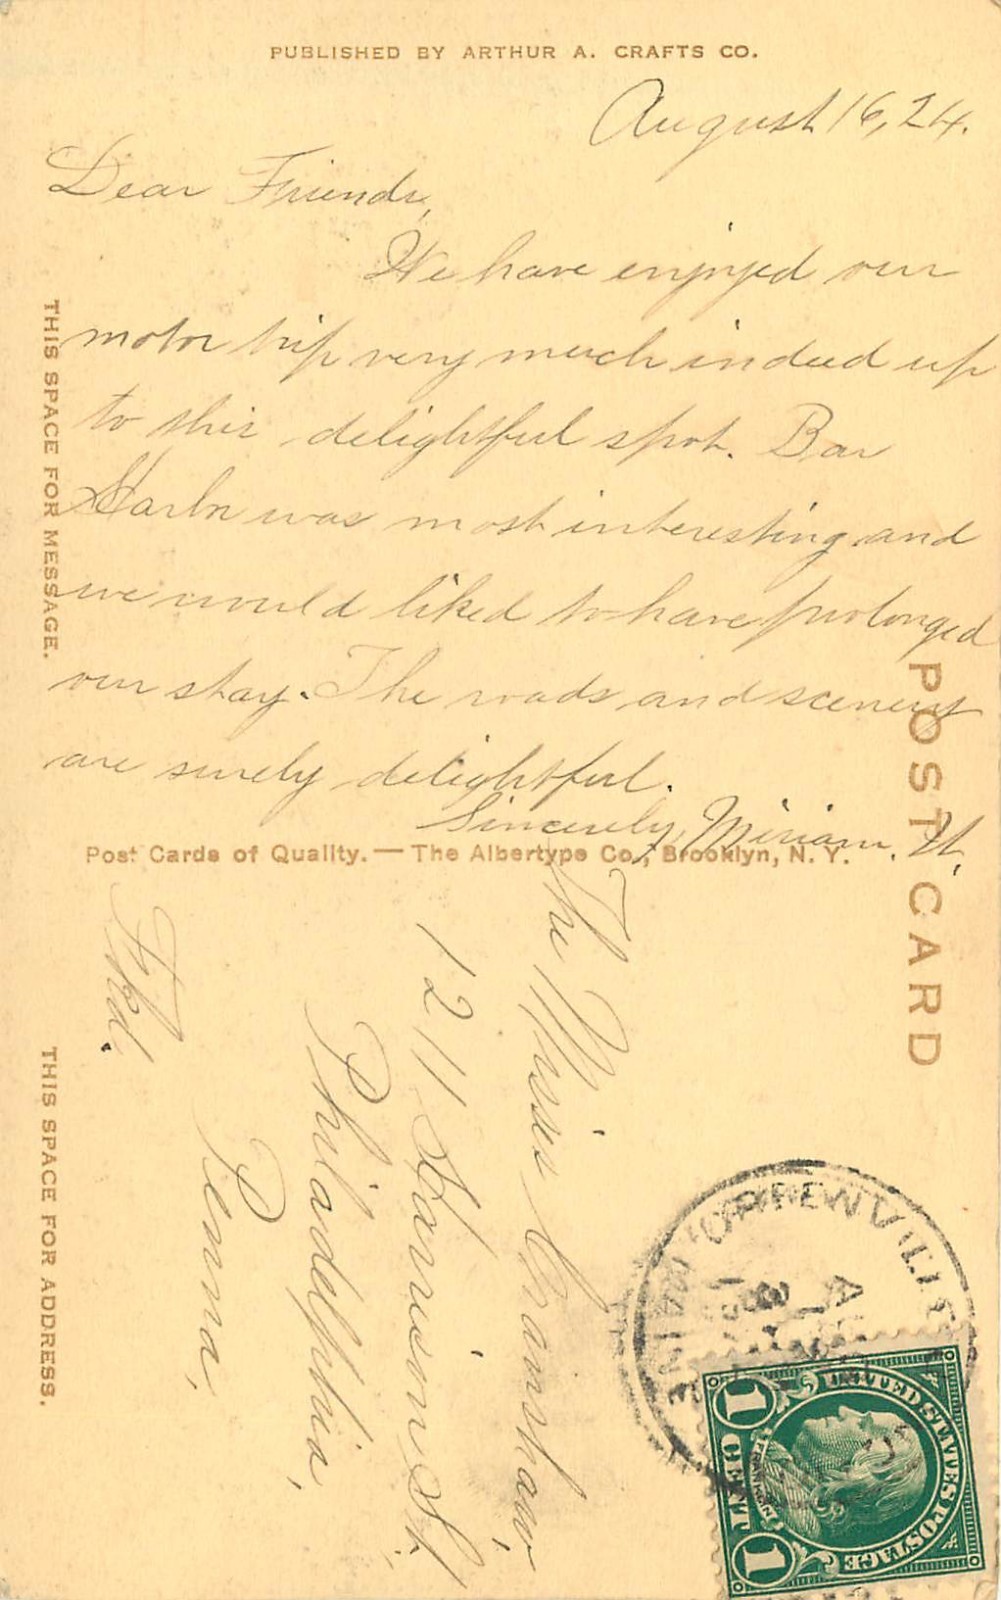 PUBLISHED BY ARTHUR A. CRAFTS CO.
August 16, 24.
Dear Friends,
We have enjoyed our
motor trip very much indeed up
to this delightful spot. Bar
Harbor was most interesting and
we would liked to have prolonged
our stay. The roads and scenery
are surely delightful.
Sincerely, Miriam. H.
THIS SPACE FOR MESSAGE.
Post Cards of Quality. — The Albertype Co., Brooklyn, N. Y.
POST CARD
THIS SPACE FOR ADDRESS.
The Misses Cranshaw,
1211 Harrison St.,
Philadelphia,
Penna,
Fkd.
MAINE
UNITED STATES POSTAGE
FRANKLIN
1 CENT 1